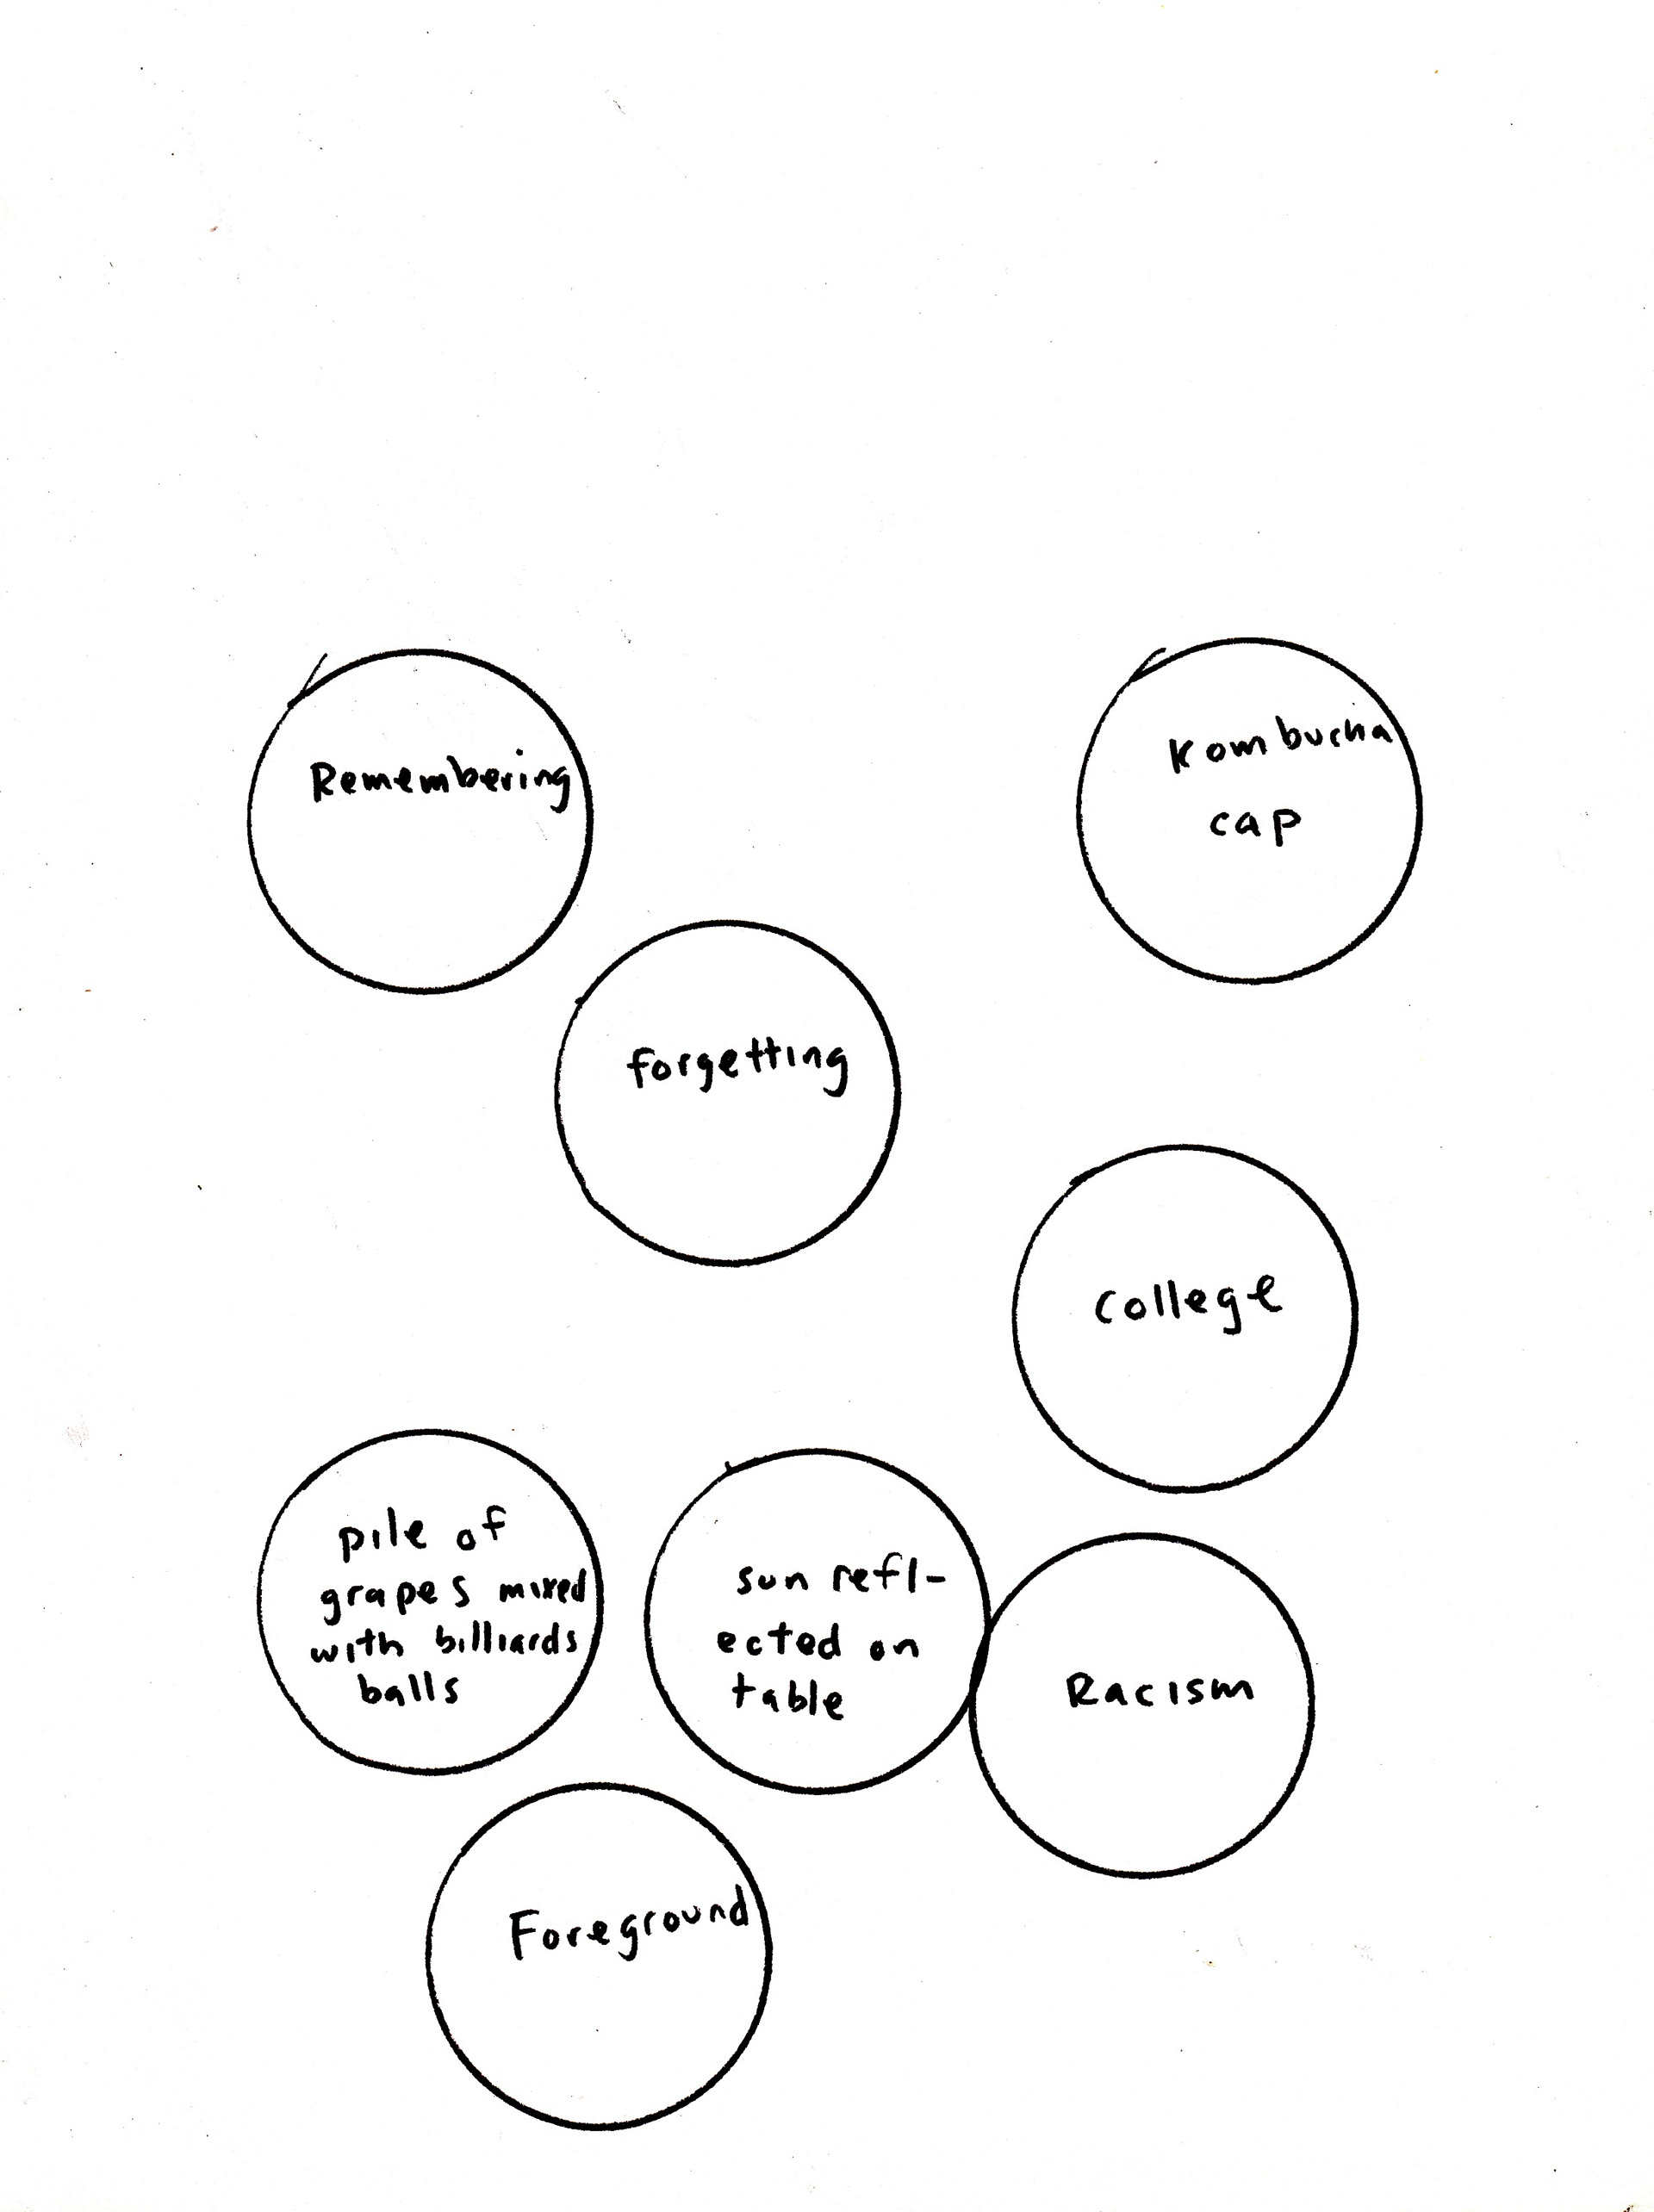 Remembering
Kombucha
cap
forgetting
college
pile of
grapes mixed
with billiards
balls
sun refl-
ected on
table
Racism
Foreground